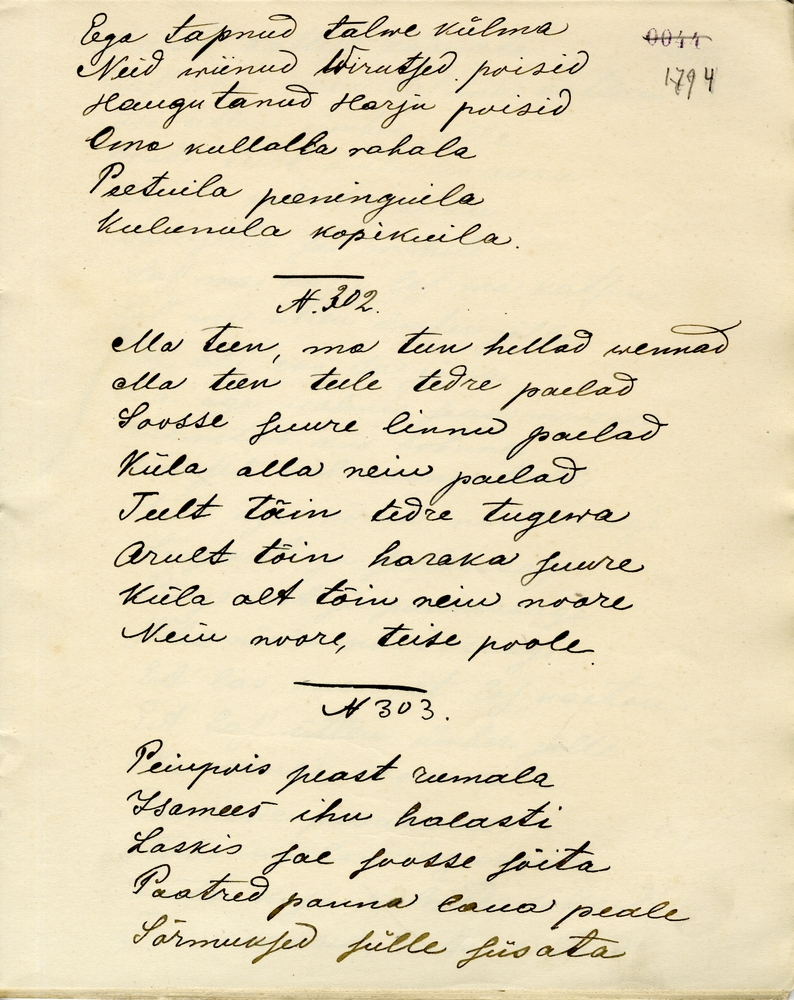 Ega tapnud talwe külma
0044
Neid wiinud Wirutsed poisid
1794
Haugutanud Harju poisid
Oma kullalla rahala
Peetuila peeninguila
kopikuila.
N. 302.
Ma teen, ma teen hellad wennad
Ma teen teele tedre paelad
Soosse suure linnu paelad
Küla alla neiu paelad
Teelt tõin tedre tugewa
Arult tõin haraka suure
Küla alt tõin neiu noore
Neiu noore, teise poole.
N 303.
Peiupois peast rumala
Isamees ihu halasti
Laskis sae soosse sõita
Paatred panna laua peale
Sõrmuksed sülle süsata